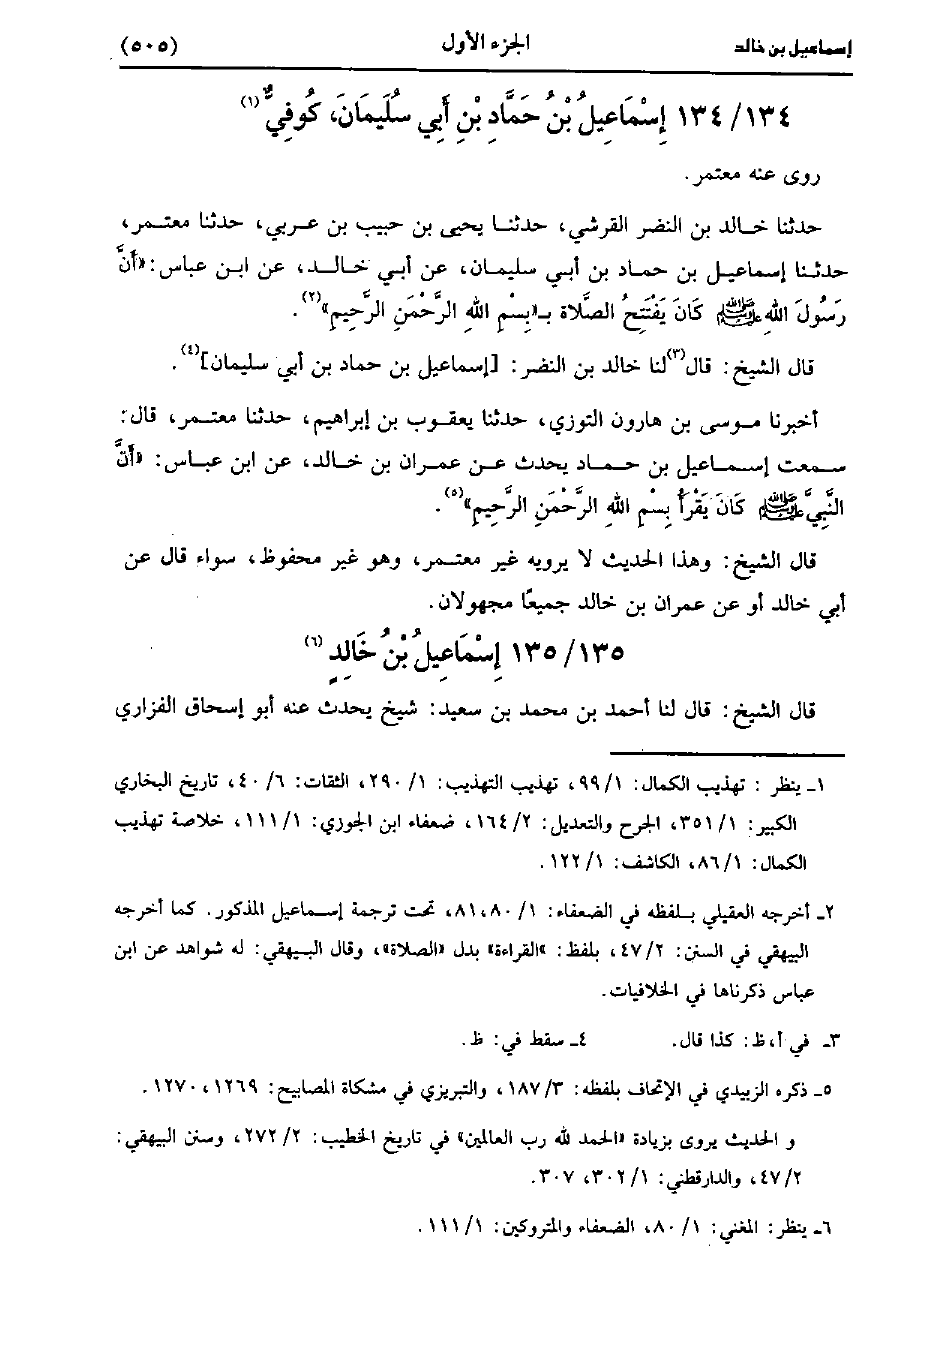 إسماعيل بن خالد الجزء الأول (٥٠٥)
١٣٤/ ١٣٤ إِسْمَاعِيلُ بْنُ حَمَّادِ بْنِ أَبِي سُلَيمَانَ، كُوفِيٌّ(١)
روى عنه معتمر.
حدثنا خالد بن النضر القرشي، حدثنا يحيى بن حبيب بن عربي، حدثنا معتمر،
حدثنا إسماعيل بن حماد بن أبي سليمان، عن أبي خالد، عن ابن عباس: «أَنَّ
رَسُولَ اللهِ ﷺ كَانَ يَفْتَتِحُ الصَّلاةَ بـ«بِسْمِ اللهِ الرَّحْمَنِ الرَّحِيمِ»(٢).
قال الشيخ: قال(٣) لنا خالد بن النضر: [إسماعيل بن حماد بن أبي سليمان](٤).
أخبرنا موسى بن هارون التوزي، حدثنا يعقوب بن إبراهيم، حدثنا معتمر، قال:
سمعت إسماعيل بن حماد يحدث عن عمران بن خالد، عن ابن عباس: «أَنَّ
النَّبِيَّ ﷺ كَانَ يَقْرَأُ بِسْمِ اللهِ الرَّحْمَنِ الرَّحِيمِ»(٥).
قال الشيخ: وهذا الحديث لا يرويه غير معتمر، وهو غير محفوظ، سواء قال عن
أبي خالد أو عن عمران بن خالد جميعًا مجهولان.
١٣٥/ ١٣٥ إِسْمَاعِيلُ بْنُ خَالِدٍ(٦)
قال الشيخ: قال لنا أحمد بن محمد بن سعيد: شيخ يحدث عنه أبو إسحاق الفزاري
١ـ ينظر : تهذيب الكمال: ١/ ٩٩، تهذيب التهذيب: ١/ ٢٩٠، الثقات: ٦/ ٤٠، تاريخ البخاري
الكبير: ١/ ٣٥١، الجرح والتعديل: ٢/ ١٦٤، ضعفاء ابن الجوزي: ١/ ١١١، خلاصة تهذيب
الكمال: ١/ ٨٦، الكاشف: ١/ ١٢٢.
٢ـ أخرجه العقيلي بلفظه في الضعفاء: ١/ ٨٠، ٨١، تحت ترجمة إسماعيل المذكور. كما أخرجه
البيهقي في السنن: ٢/ ٤٧، بلفظ: «القراءة» بدل «الصلاة»، وقال البيهقي: له شواهد عن ابن
عباس ذكرناها في الخلافيات.
٣ـ في أ، ظ: كذا قال. ٤ـ سقط في: ظ.
٥ـ ذكره الزبيدي في الإتحاف بلفظه: ٣/ ١٨٧، والتبريزي في مشكاة المصابيح: ١٢٦٩، ١٢٧٠.
و الحديث يروى بزيادة «الحمد لله رب العالمين» في تاريخ الخطيب: ٢/ ٢٧٢، وسنن البيهقي:
٢/ ٤٧، والدارقطني: ١/ ٣٠٢، ٣٠٧.
٦ـ ينظر: المغني: ١/ ٨٠، الضعفاء والمتروكين: ١/ ١١١.